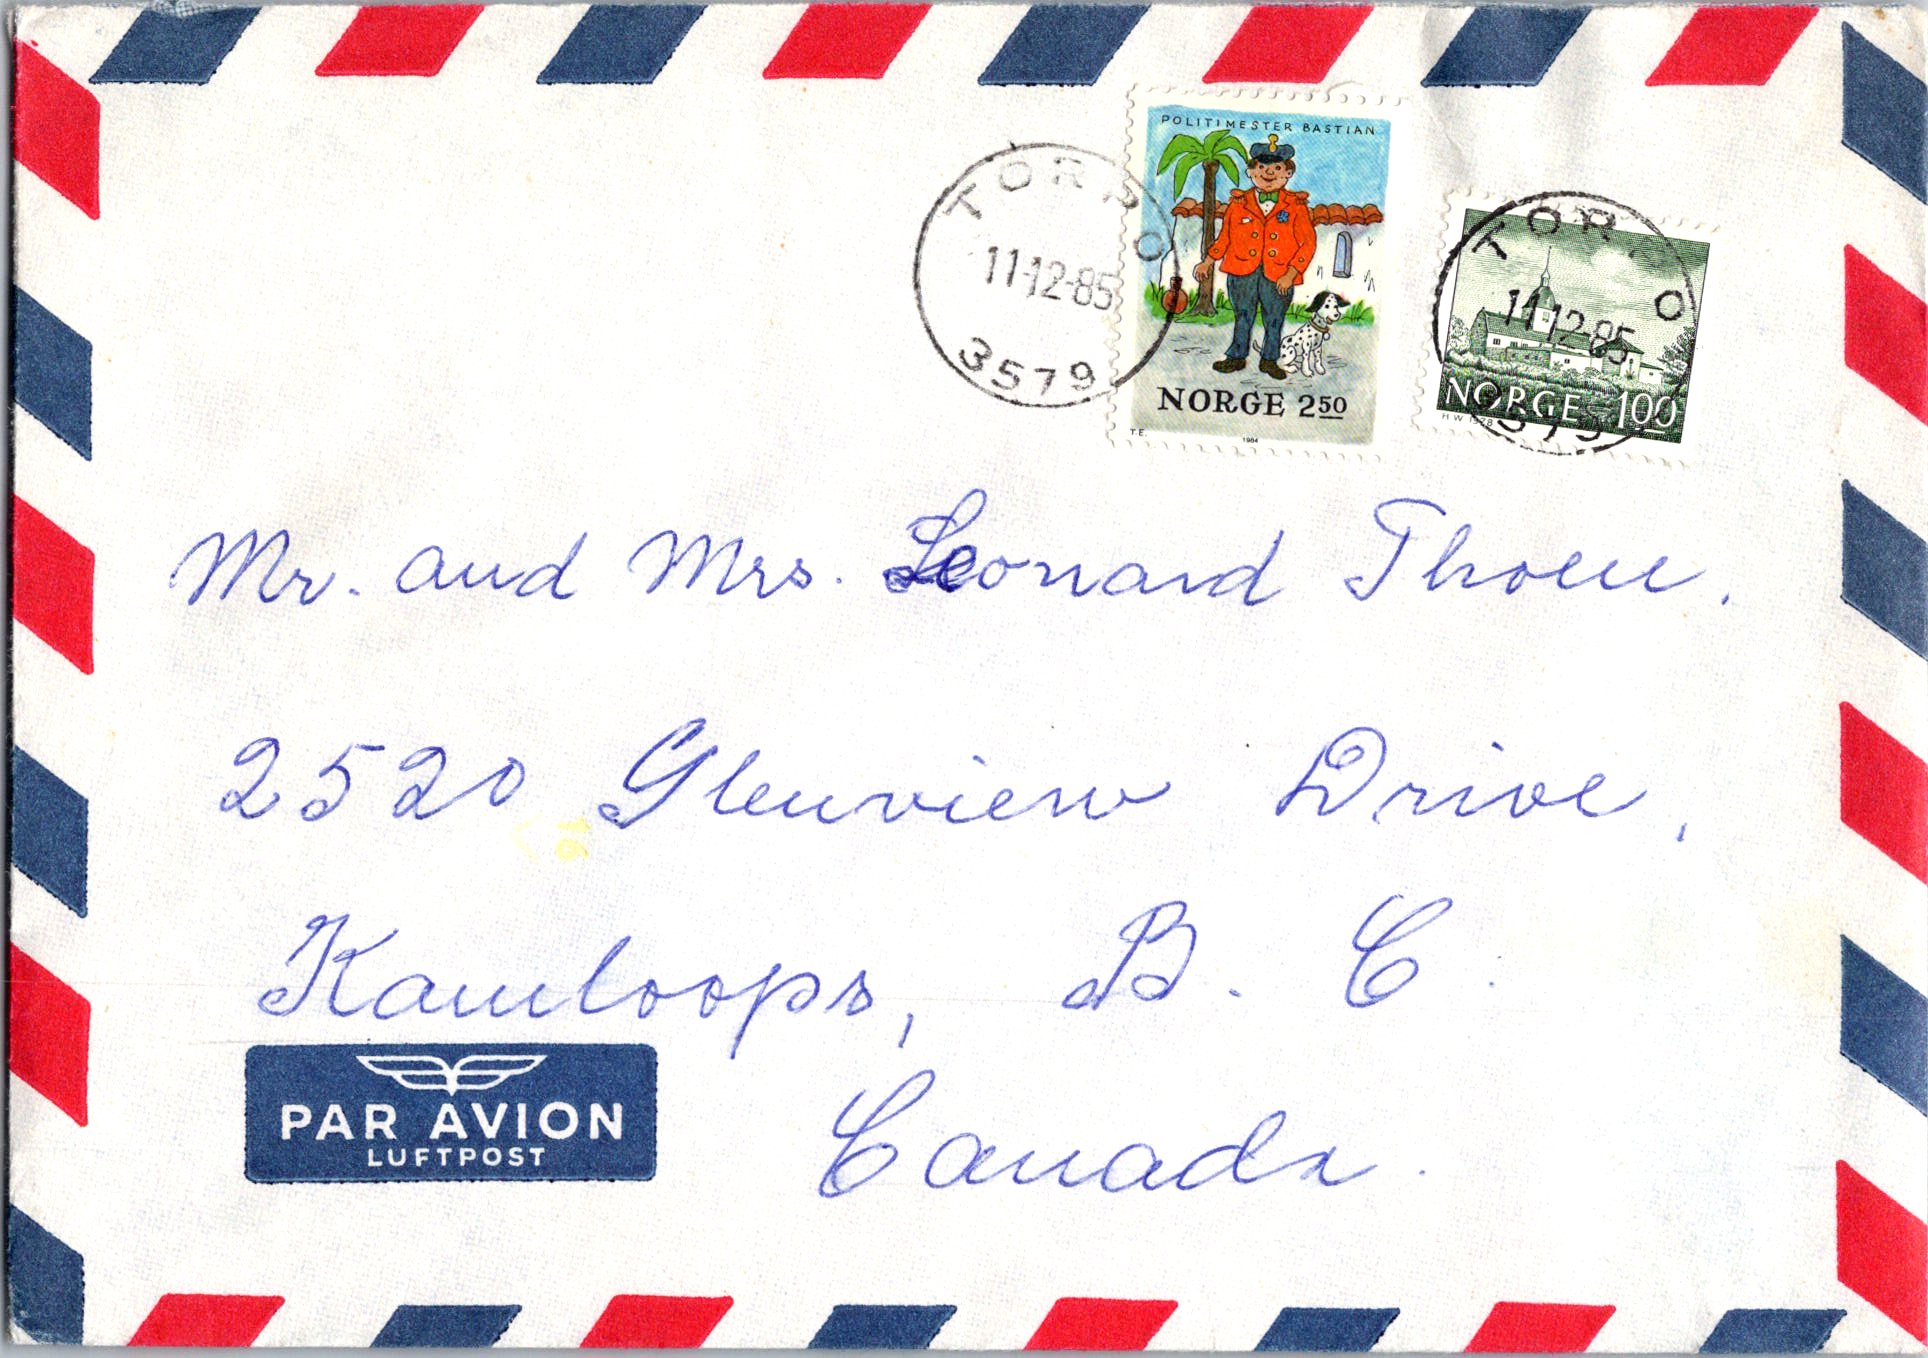 POLITIMESTER BASTIAN
TORPO
11-12-85
3579
NORGE 2 50
T.E.
1984
TORPO
11-12-85
3579
NORGE 1 00
H W 1978
Mr. and Mrs. Leonard Thoen.
2520 Glenview Drive,
Kamloops, B. C.
Canada.
PAR AVION
LUFTPOST